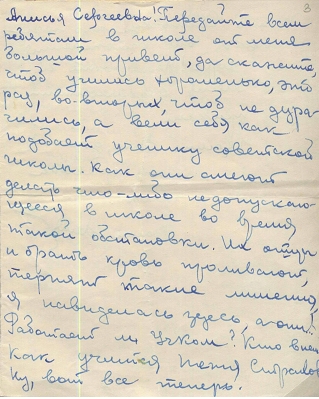 3
Анисья Сергеевна! Передайте всем
ребятам в школе от меня
большой привет, да скажите,
чтоб учились хорошенько, это
раз, во-вторых, чтоб не дура-
чились, а вели себя как
подобает ученику советской
школы. Как они смеют
делать что-либо недопускаю-
щееся в школе во время
такой обстановки. Их отцы
и братья кровь проливают,
терпят такие лишения,
я навиделась здесь, а они!
Работает ли Учком? Кто в нем
Как учится Женя
Ну, вот все теперь.